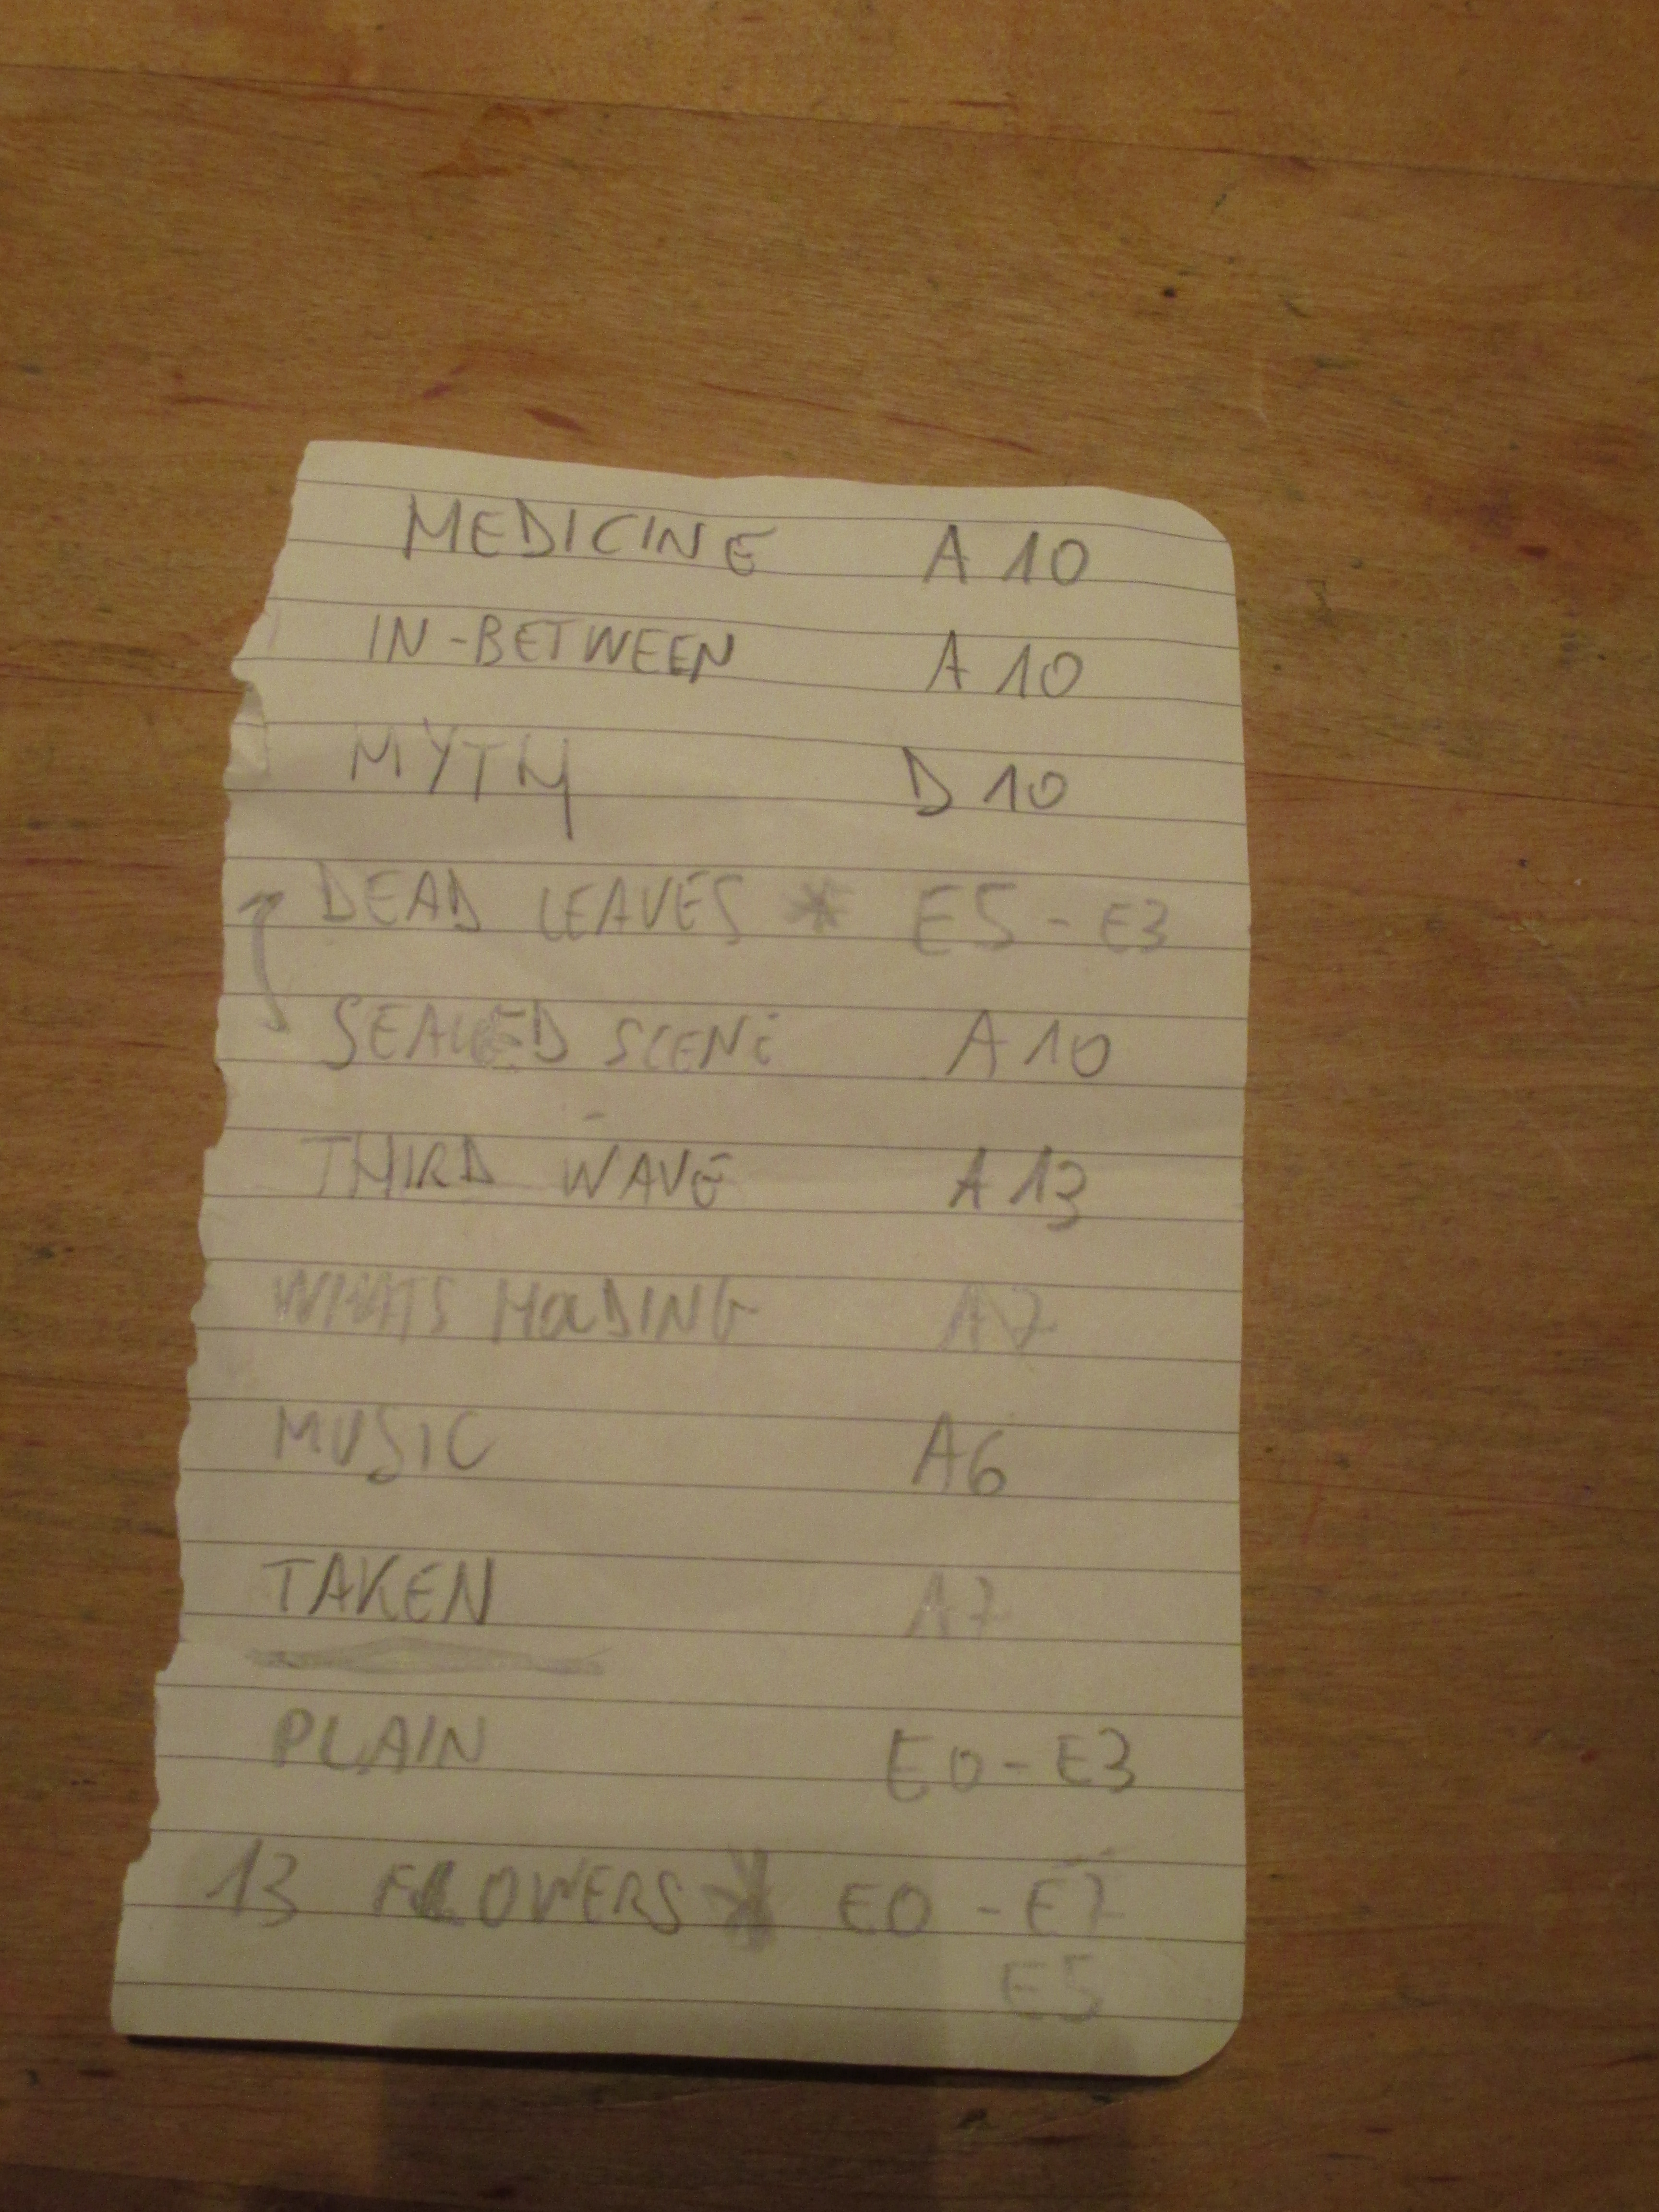 MEDICINE A 10
IN-BETWEEN A 10
MYTH D 10
DEAD LEAVES * E5 - E3
SEALED SCENE A 10
THIRD WAVE A 13
WHATS HOLDING A7
MUSIC A6
TAKEN A7
PLAIN E0 - E3
13 FLOWERS * E0 - E7
E5